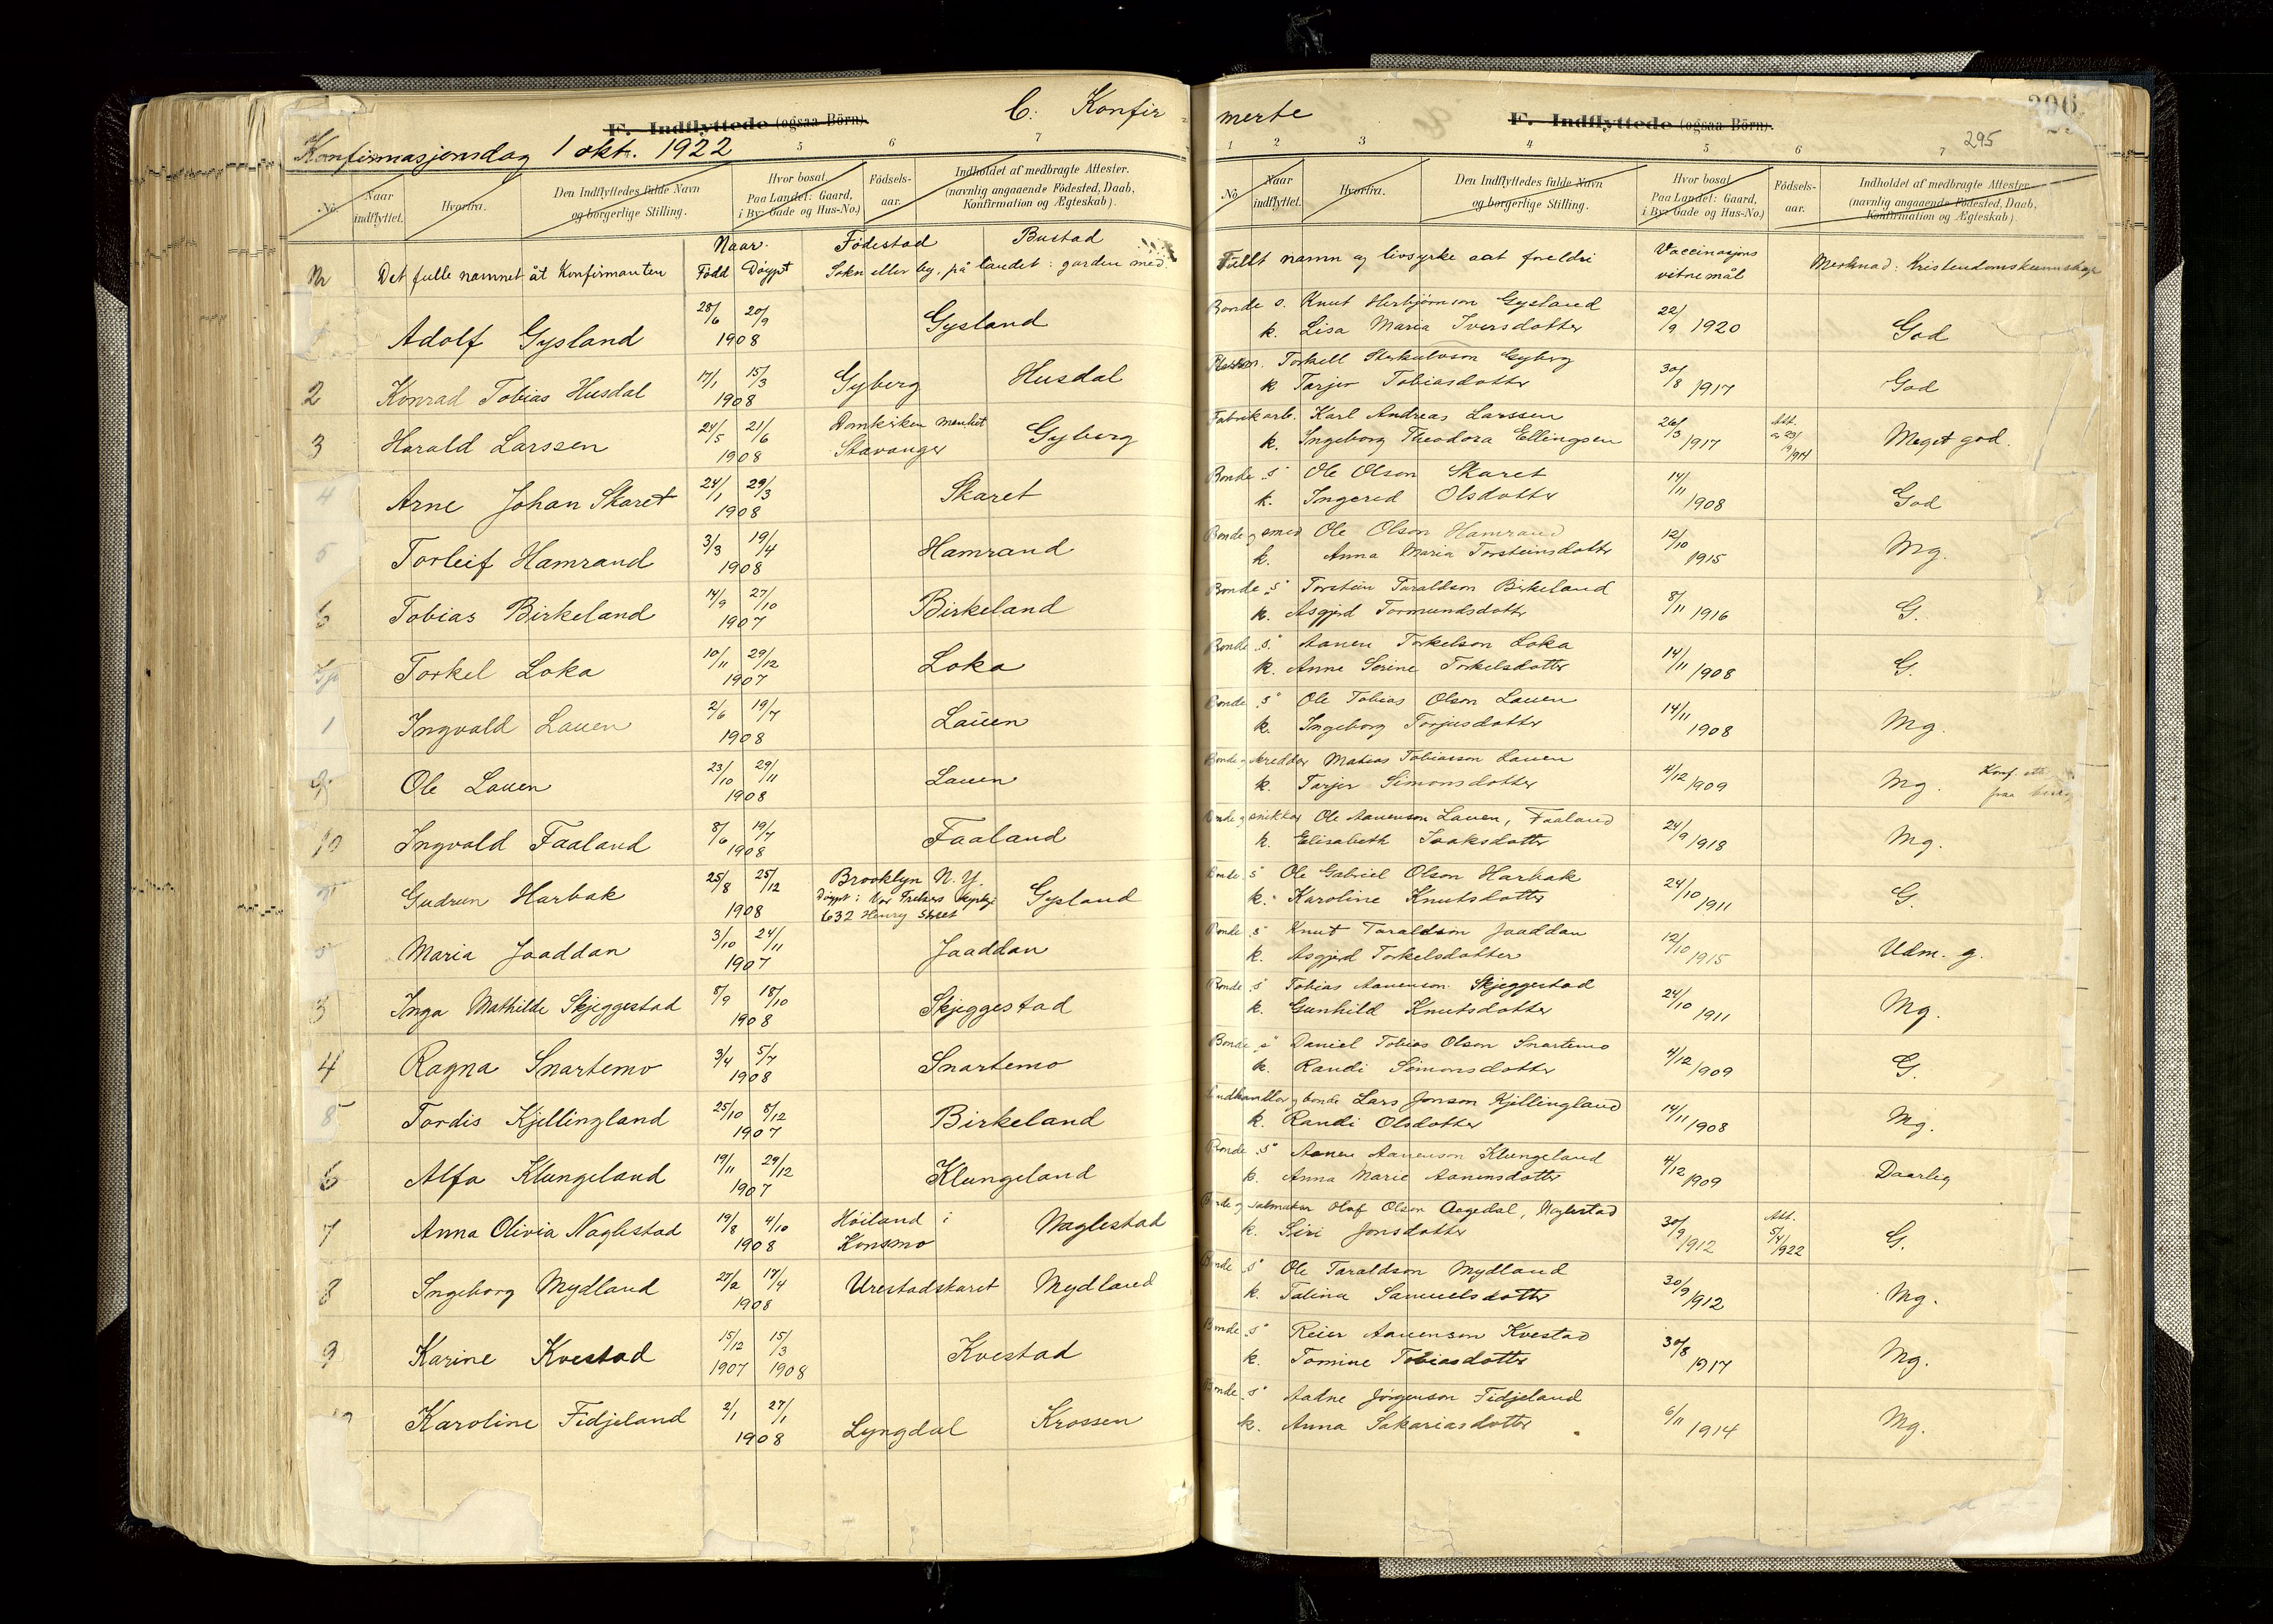 C. Konfir
F. Indflyttede (ogsaa Börn).
Konfirmasjonsdag 1 okt. 1922
5 6 7
No. Naar indflyttet. Hvorfra. Den Indflyttedes fulde Navn og borgerlige Stilling. Hvor bosat. Paa Landet: Gaard, i By: Gade og Hus-No.) Födsels-aar. Indholdet af medbragte Attester. (navnlig angaaende Födested, Daab, Konfirmation og Ægteskab).
Naar. Födestad Bustad
Nr Det fulle namnet åt Konfirmanten Född Döypt Sokn eller by, på landet: garden med
Adolf Gysland 28/6 20/9 1908 Gysland
2 Konrad Tobias Husdal 17/1 15/3 1908 Gyberg Husdal
3 Harald Larssen 24/5 21/6 1908 Domkirken menhet Stavanger Gyberg
4 Arne Johan Skaret 24/1 29/3 1908 Skaret
5 Torleif Hamrand 3/3 19/4 1908 Hamrand
6 Tobias Birkeland 14/9 27/10 1907 Birkeland
Torkel Loka 10/11 29/12 1907 Loka
1 Ingvald Lauen 2/6 19/7 1908 Lauen
9 Ole Lauen 23/10 29/11 1908 Lauen
10 Ingvald Faaland 8/6 19/7 1908 Faaland
Gudrun Harbak 25/8 25/12 1908 Brooklyn N. Y. Döypt i Vor Frelsers 632 Henry Street Gysland
Maria Jaaddan 3/10 24/11 1907 Jaaddan
3 Inga Mathilde Skjeggestad 8/9 18/10 1908 Skjeggestad
4 Ragna Snartemo 3/4 5/7 1908 Snartemo
5 Tordis Kjellingland 25/10 8/12 1907 Birkeland
6 Alfa Klungeland 19/11 29/12 1907 Klungeland
7 Anna Olivia Naglestad 19/8 4/10 1908 Höiland i Konsmo Naglestad
8 Ingeborg Mydland 27/2 17/4 1908 Urestadskaret Mydland
9 Karine Kvestad 15/12 1907 15/3 1908 Kvestad
Karoline Fidjeland 2/1 27/1 1908 Lyngdal Krossen
merte
F. Indflyttede (ogsaa Börn).
296
295
1 2 3 4 5 6 7
No. Naar indflyttet. Hvorfra. Den Indflyttedes fulde Navn og borgerlige Stilling. Hvor bosat. Paa Landet: Gaard, i By: Gade og Hus-No.) Födsels-aar. Indholdet af medbragte Attester (navnlig angaaende Födested, Daab, Konfirmation og Ægteskab).
Fullt namn og livsyrke aat foreldri Vaccinasjons vitnemål Merknad: Kristendomskunnskap
Bonde s. Knut Herbjörnson Gysland
k. Lisa Maria Iversdotter 22/9 1920 God
Torkell Gyberg
k Tarjer Tobiasdotter 30/8 1917 God
Fabrikarb. Karl Andreas Larssen
k. Ingeborg Theodora Ellingsen 26/3 1917 Meget god.
Bonde s. Ole Olson Skaret
k. Ingered Olsdotter 14/11 1908 God
Bonde og smed Ole Olson Hamrand
k. Anna Maria Torsteinsdotter 12/10 1915 Mg.
Bonde s. Torstein Taraldson Birkeland
k. Asgjerd Tormundsdotter 8/11 1916 G.
Bonde s. Aanen Torkelson Loka
k. Anne Serine Torkelsdotter 14/11 1908 G.
Bonde s. Ole Tobias Olson Lauen
k. Ingeborg Torjusdotter 14/11 1908 Mg.
Bonde og skredder Matias Tobiasson Lauen
k. Tarjer Simonsdotter 4/12 1909 Mg. Konf.
Bonde og snikkar Ole Aanenson Lauen, Faaland
k. Elisabeth Isaksdotter 24/9 1918 Mg.
Bonde s Ole Gabriel Olson Harbak
k. Karoline Knutsdotter 24/10 1911 G.
Bonde s Knut Taraldson Jaaddan
k. Asgjerd Torkelsdotter 12/10 1915 Udm. g.
Bonde s Tobias Aanenson Skjeggestad
k. Gunhild Knutsdotter 24/10 1911 Mg.
Bonde s Daniel Tobias Olson Snartemo
k. Randi Simonsdotter 4/12 1909 G.
Landhandlar og bonde Lars Jonson Kjellingland
k. Randi Olsdotter 14/11 1908 Mg.
Bonde s. Aanen Aanenson Klungeland
k. Anna Marie Aanensdotter 4/12 1909 Daarleg
Bonde og salmaker Olaf Olson Aagedal, Naglestad
k. Siri Jonsdotter 30/9 1912 Att. 5/4 1922 G.
Bonde s. Ole Taraldson Mydland
k. Talina Samuelsdotter 30/9 1912 Mg.
Bonde s. Reier Aanenson Kvestad
k. Tomine Tobiasdotter 30/8 1917 Mg.
Bonde s. Aadne Jörgenson Fidjeland
k. Anna Sakariasdotter 6/11 1914 Mg.